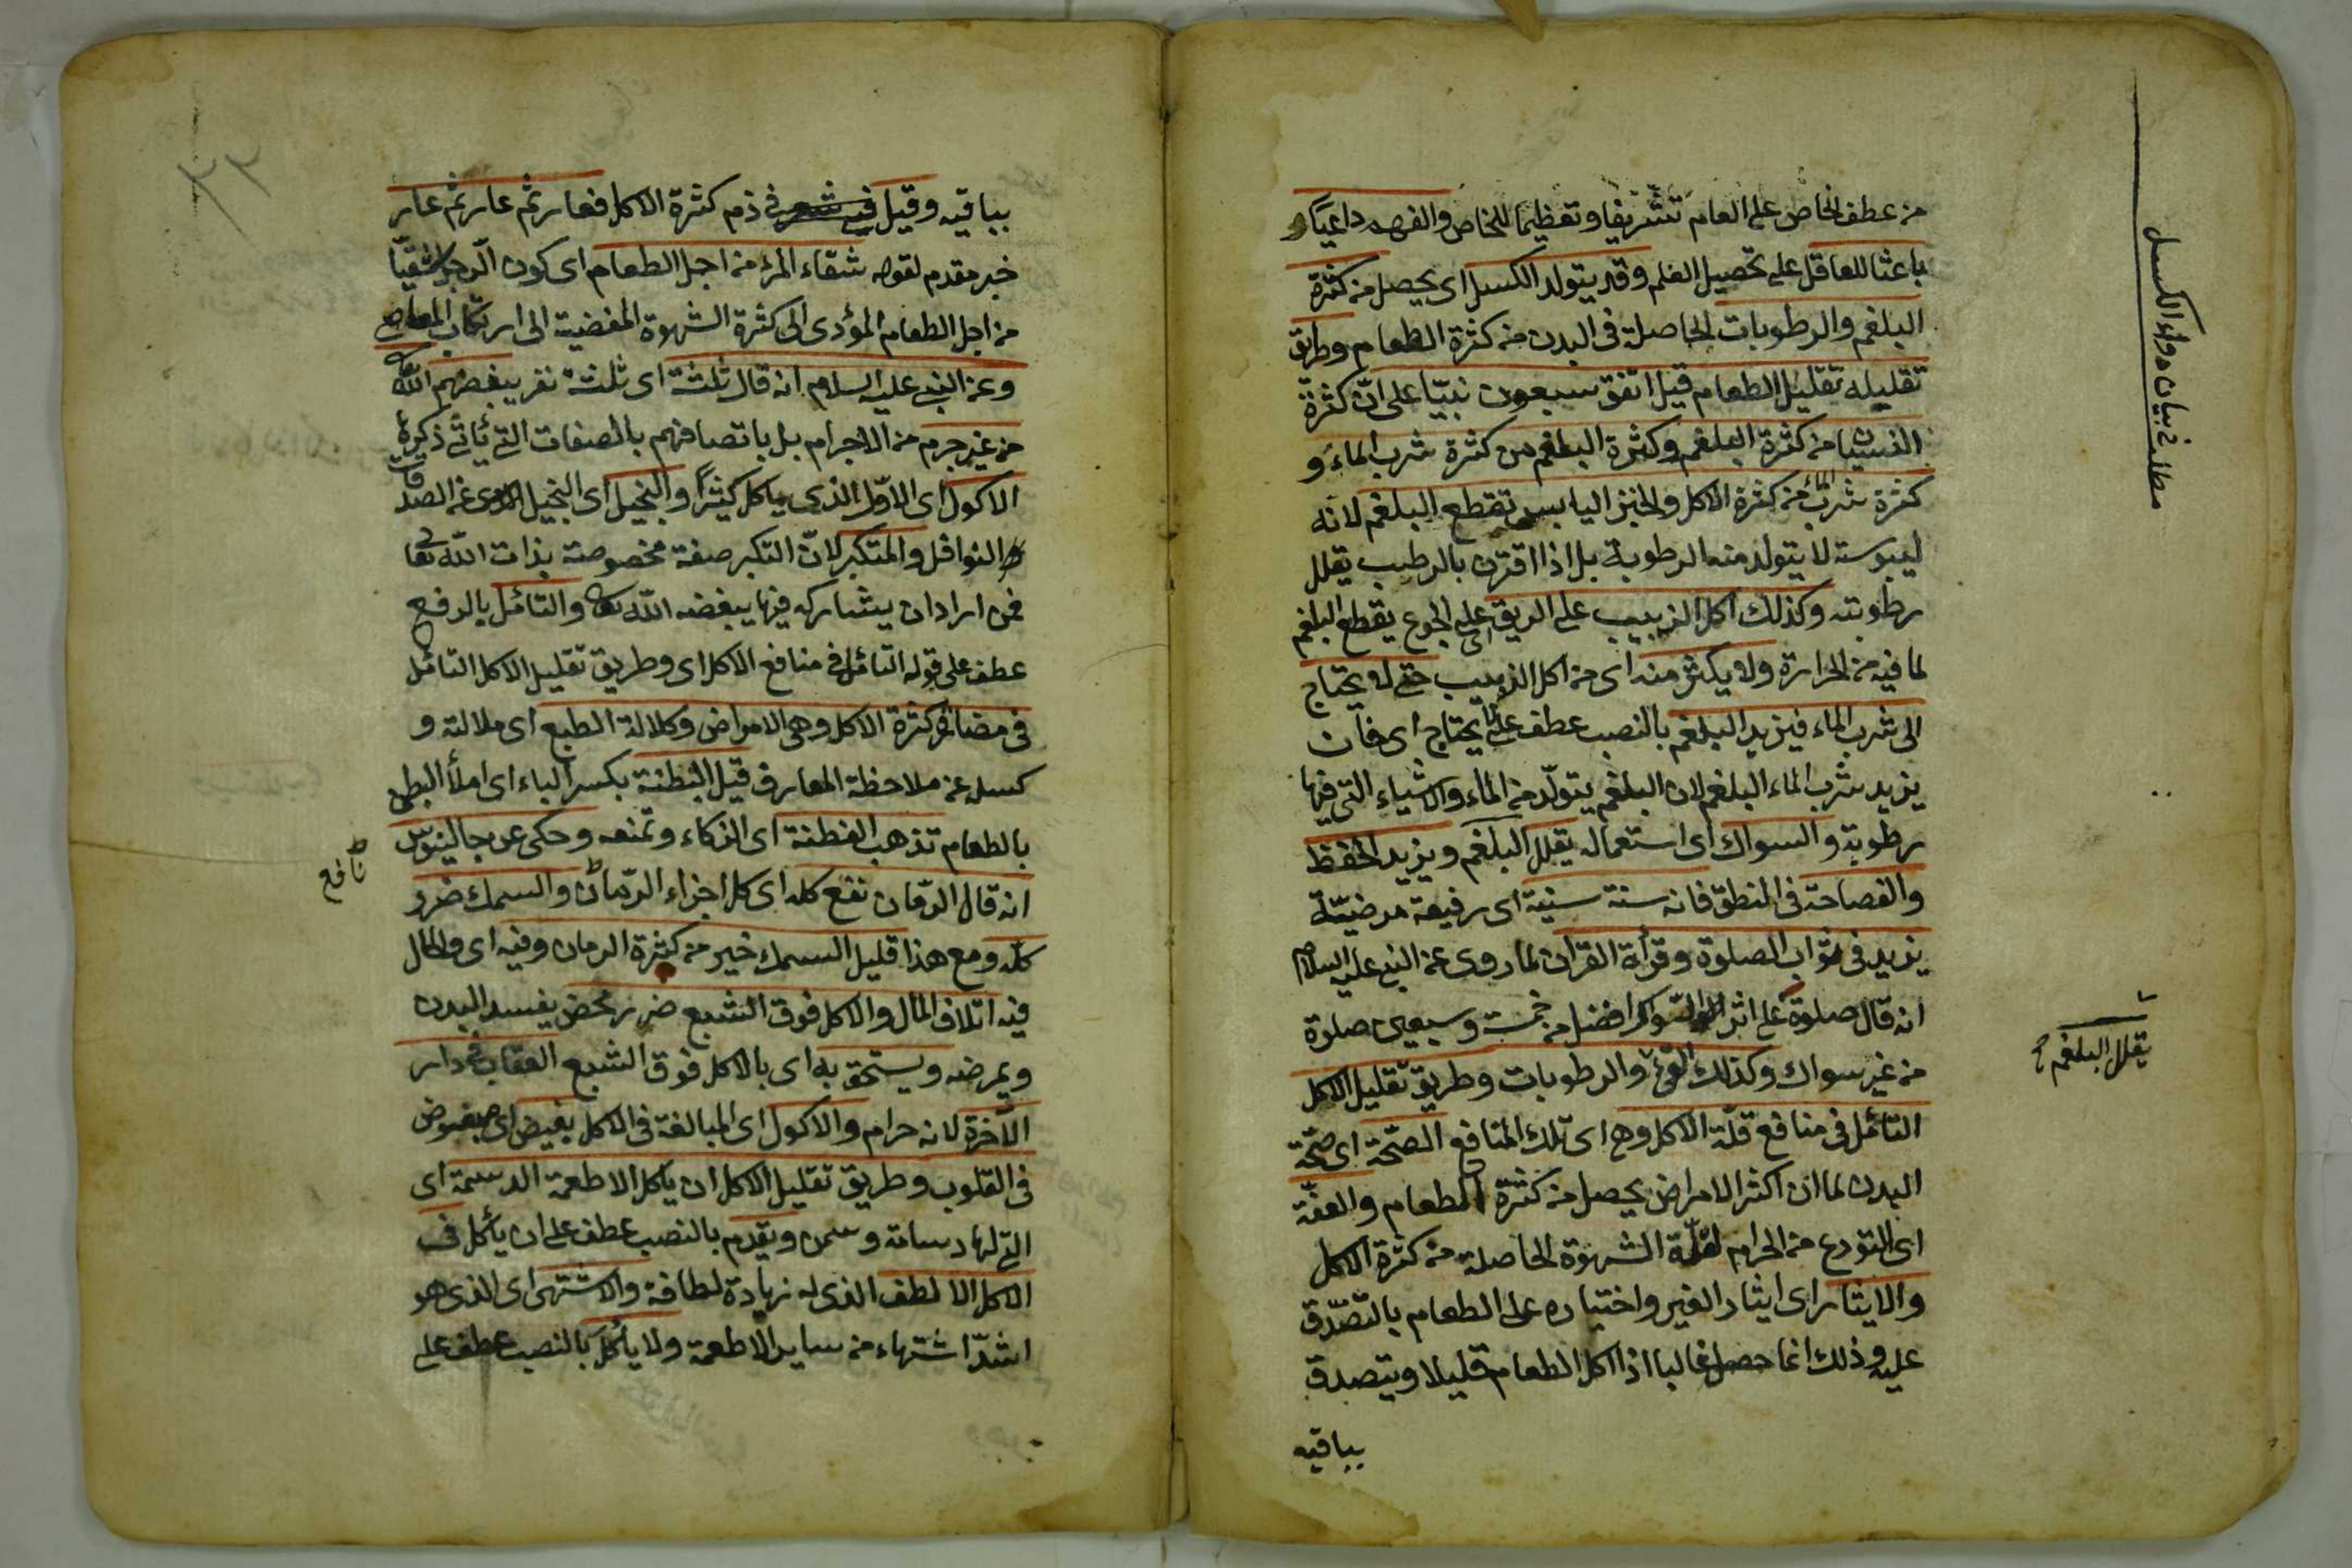 من عطف الخاص على العام تشريفا وتعظيما للخاص والفهم داعيا و
باعثا للعاقل على تحصيل العلم وقد يتولد الكسل اى يحصل من كثرة
البلغم والرطوبات الحاصلة فى البدن من كثرة الطعام وطريق
تقليله تقليل الطعام قيل اتفق سبعون نبيّا على انّ كثرة
النسيان من كثرة البلغم وكثرة البلغم من كثرة شرب الماء و
كثرة شرب الماء من كثرة الاكل والخبز اليابس تقطع البلغم لانه
ليبوسته لا يتولد منه الرطوبة بل اذا اقترن بالرطيب يقلل
رطوبته وكذلك اكل الزبيب على الريق اى على الجوع يقطع البلغم
لما فيه من الحرارة ولا يكثر منه اى من اكل الزبيب حتى لا يحتاج
الى شرب الماء فيزيد البلغم بالنصب عطف على لا يحتاج اى فان
يزيد شرب الماء البلغم لان البلغم يتولّد من الماء والاشياء التى فيها
رطوبة والسواك اى استعماله يقلل البلغم ويزيد الحفظ
والفصاحة فى المنطق فانه سنة سنية اى رفيعة مرضيّة
يزيد فى ثواب الصلوة وقرأة القران لما روى عن النبى عليه السلام
انه قال صلوة على اثر السواك افضل من خمسة وسبعين صلوة
من غير سواك وكذلك القئ والرطوبات وطريق تقليل الاكل
التأمّل فى منافع قلّة الاكل وهى اى تلك المنافع الصّحّة اى صّحّة
البدن لما ان اكثر الامراض يحصل من كثرة الطعام والعفّة
اى التورع من الحرام لقلّة الشهوة الحاصلة من كثرة الاكل
والايثار اى ايثار الغير واختياره على الطعام بالتّصدّق
عليه وذلك انما حصل غالبا اذا اكل الطعام قليلا ويتصدق
بباقيه
مطلب فى بيان دواء الكسل
يقلل البلغم
بباقيه وقيل فيه شعر فى ذم كثرة الاكل فعار ثمّ عار ثمّ عار
خبر مقدم لقوله شقاء المرء من اجل الطعام اى كون الرجل شقيّا
من اجل الطعام المؤدى الى كثرة الشهوة المفضية الى ارتكاب المعاصى
وعن النبى عليه السلام انه قال ثلثة اى ثلثة نفر يبغضهم الله تعا
من غير جرم من الاجرام بل باتصافهم بالصفات التى يأتى ذكره
الاكول اى الاوّل الذى ياكل كثيرًا والبخيل اى البخيل عن الصدقات
والنوافل والمتكبر لانّ التكبر صفة مخصوصة بذات الله تعا
فمن اراد ان يشاركه فيها يبغضه الله تعا والتامّل بالرفع
عطف على قوله التأمّل فى منافع الاكل اى وطريق تقليل الاكل التامّل
فى مضار كثرة الاكل وهى الامراض وكلالة الطبع اى ملالته و
كسله عن ملاحظة المعارف قيل البطنة بكسر الباء اى املأ البطن
بالطعام تذهب الفطنة اى الذكاء وتمنعه وحكى عن جالينوس
انه قال الرّمان نفع كله اى كل اجزاء الرّمان والسمك ضرر
كلّه ومع هذا قليل السمك خير من كثرة الرمان وفيه اى والحال
فيه اتلاف المال والاكل فوق الشبع ضرر محض يفسد البدن
ويمرضه ويستحق به اى بالاكل فوق الشبع العقاب فى دار
الآخرة لانه حرام والاكول اى المبالغة فى الاكل بغيض اى مبغوض
فى القلوب وطريق تقليل الاكل ان ياكل الاطعمة الدسمة اى
التى لها دسامة وسمن ويقدم بالنصب عطف على ان يأكل فى
الاكل الالطف الذى له زيادة لطافة والاشتهى اى الذى هو
اشدّ اشتهاء من ساير الاطعمة ولا ياكل بالنصب عطف على
نافع